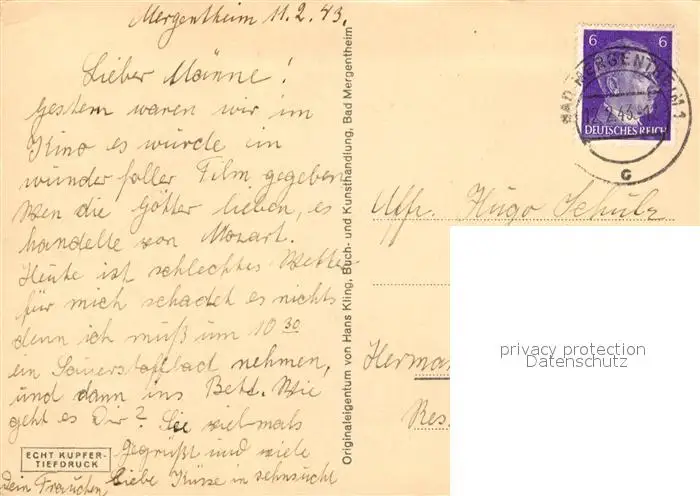 Mergentheim 11.2.43.
Lieber Männe!
Gestern waren wir im
Kino es wurde ein
wunder faller Film gegeben
Wen die Götter lieben, es
handelte von Mozart.
Heute ist schlechtes Wetter
für mich schadet es nichts
denn ich muß um 10 30
ein Sauerstoffbad nehmen,
und dann ins Bett. Wie
geht es Dir? Sei vielmals
gegrüßt und viele
liebe Küsse in sehnsucht
Dein Frauchen
ECHT KUPFER-
TIEFDRUCK
Originaleigentum von Hans Kling, Buch- und Kunsthandlung, Bad Mergentheim
6 6
DEUTSCHES REICH
BAD MERGENTHEIM 1
12.2.43
G
Uffz. Hugo Schulz
Herma
Res.
privacy protection
Datenschutz